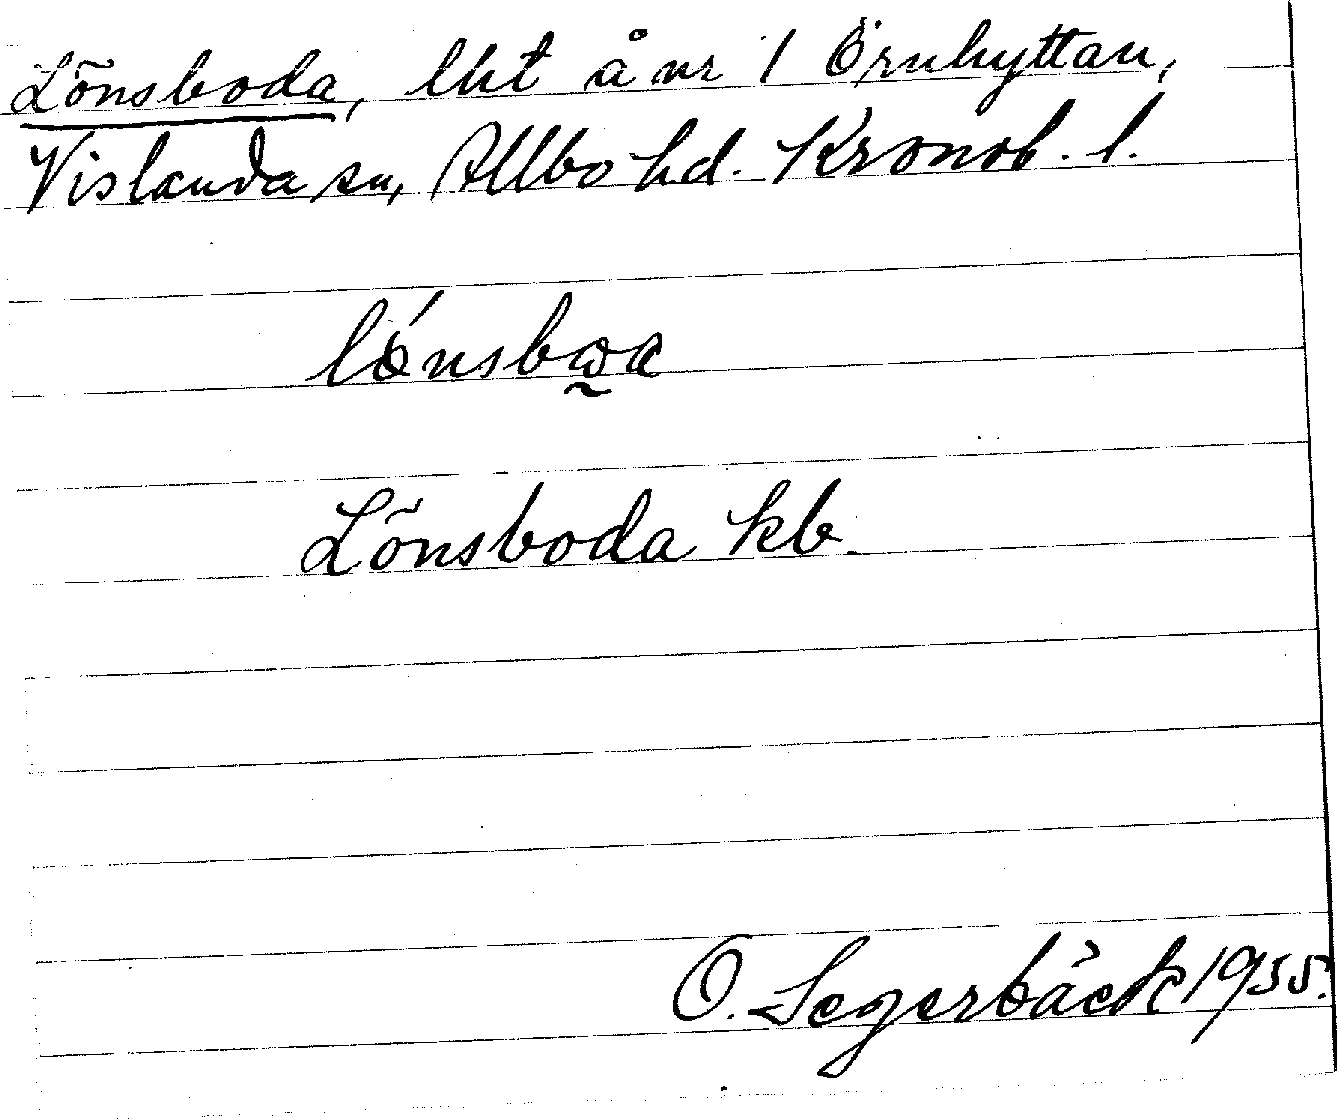 Lönsboda, lht å nr 1 Örnhyttan,
Vislanda sn, Allbo hd. Kronob. l.
Lönsboda kb.
O. Segerbäck 1955.